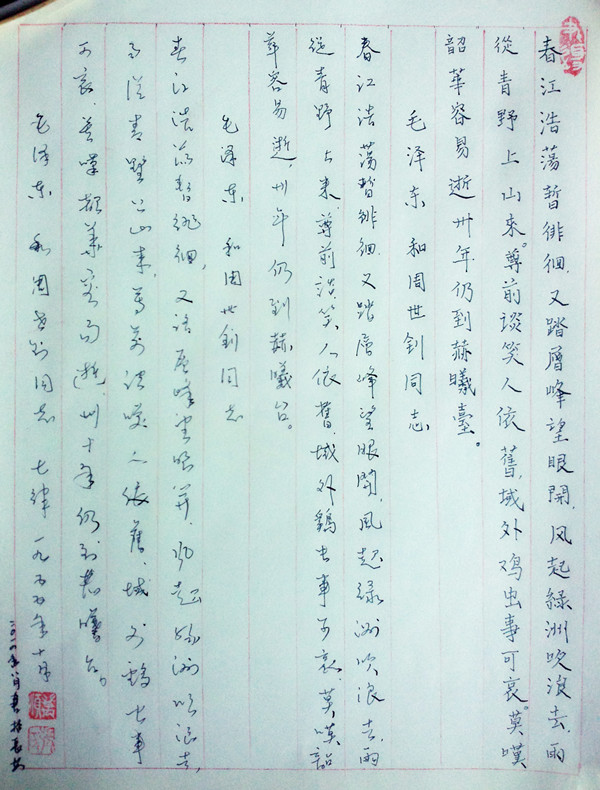 春江浩荡暫徘徊.又踏層峰望眼開.风起綠洲吹浪去.雨
從青野上山來。尊前谈笑人依舊,域外鸡虫事可哀。莫嘆
韶華容易逝卅年仍到赫曦臺。
毛泽东 和周世钊同志
春江浩蕩暫徘徊.又踏層峰望眼開,风起绿洲吹浪去.雨
從青野上山来.尊前談笑人依舊.域外鷄虫事可哀.莫嘆韶
華容易逝卅年仍到赫曦台。
毛泽东 和周世钊同志
春江浩荡暫徘徊,又踏层峰望眼開.风起绿洲吹浪去,
雨從青野上山来,尊前谈笑人依舊.域外鷄虫事
可哀.莫嘆韶華容易逝,卅年仍到赫曦台。
毛泽东 和周世钊同志 七律 一九五五年十月